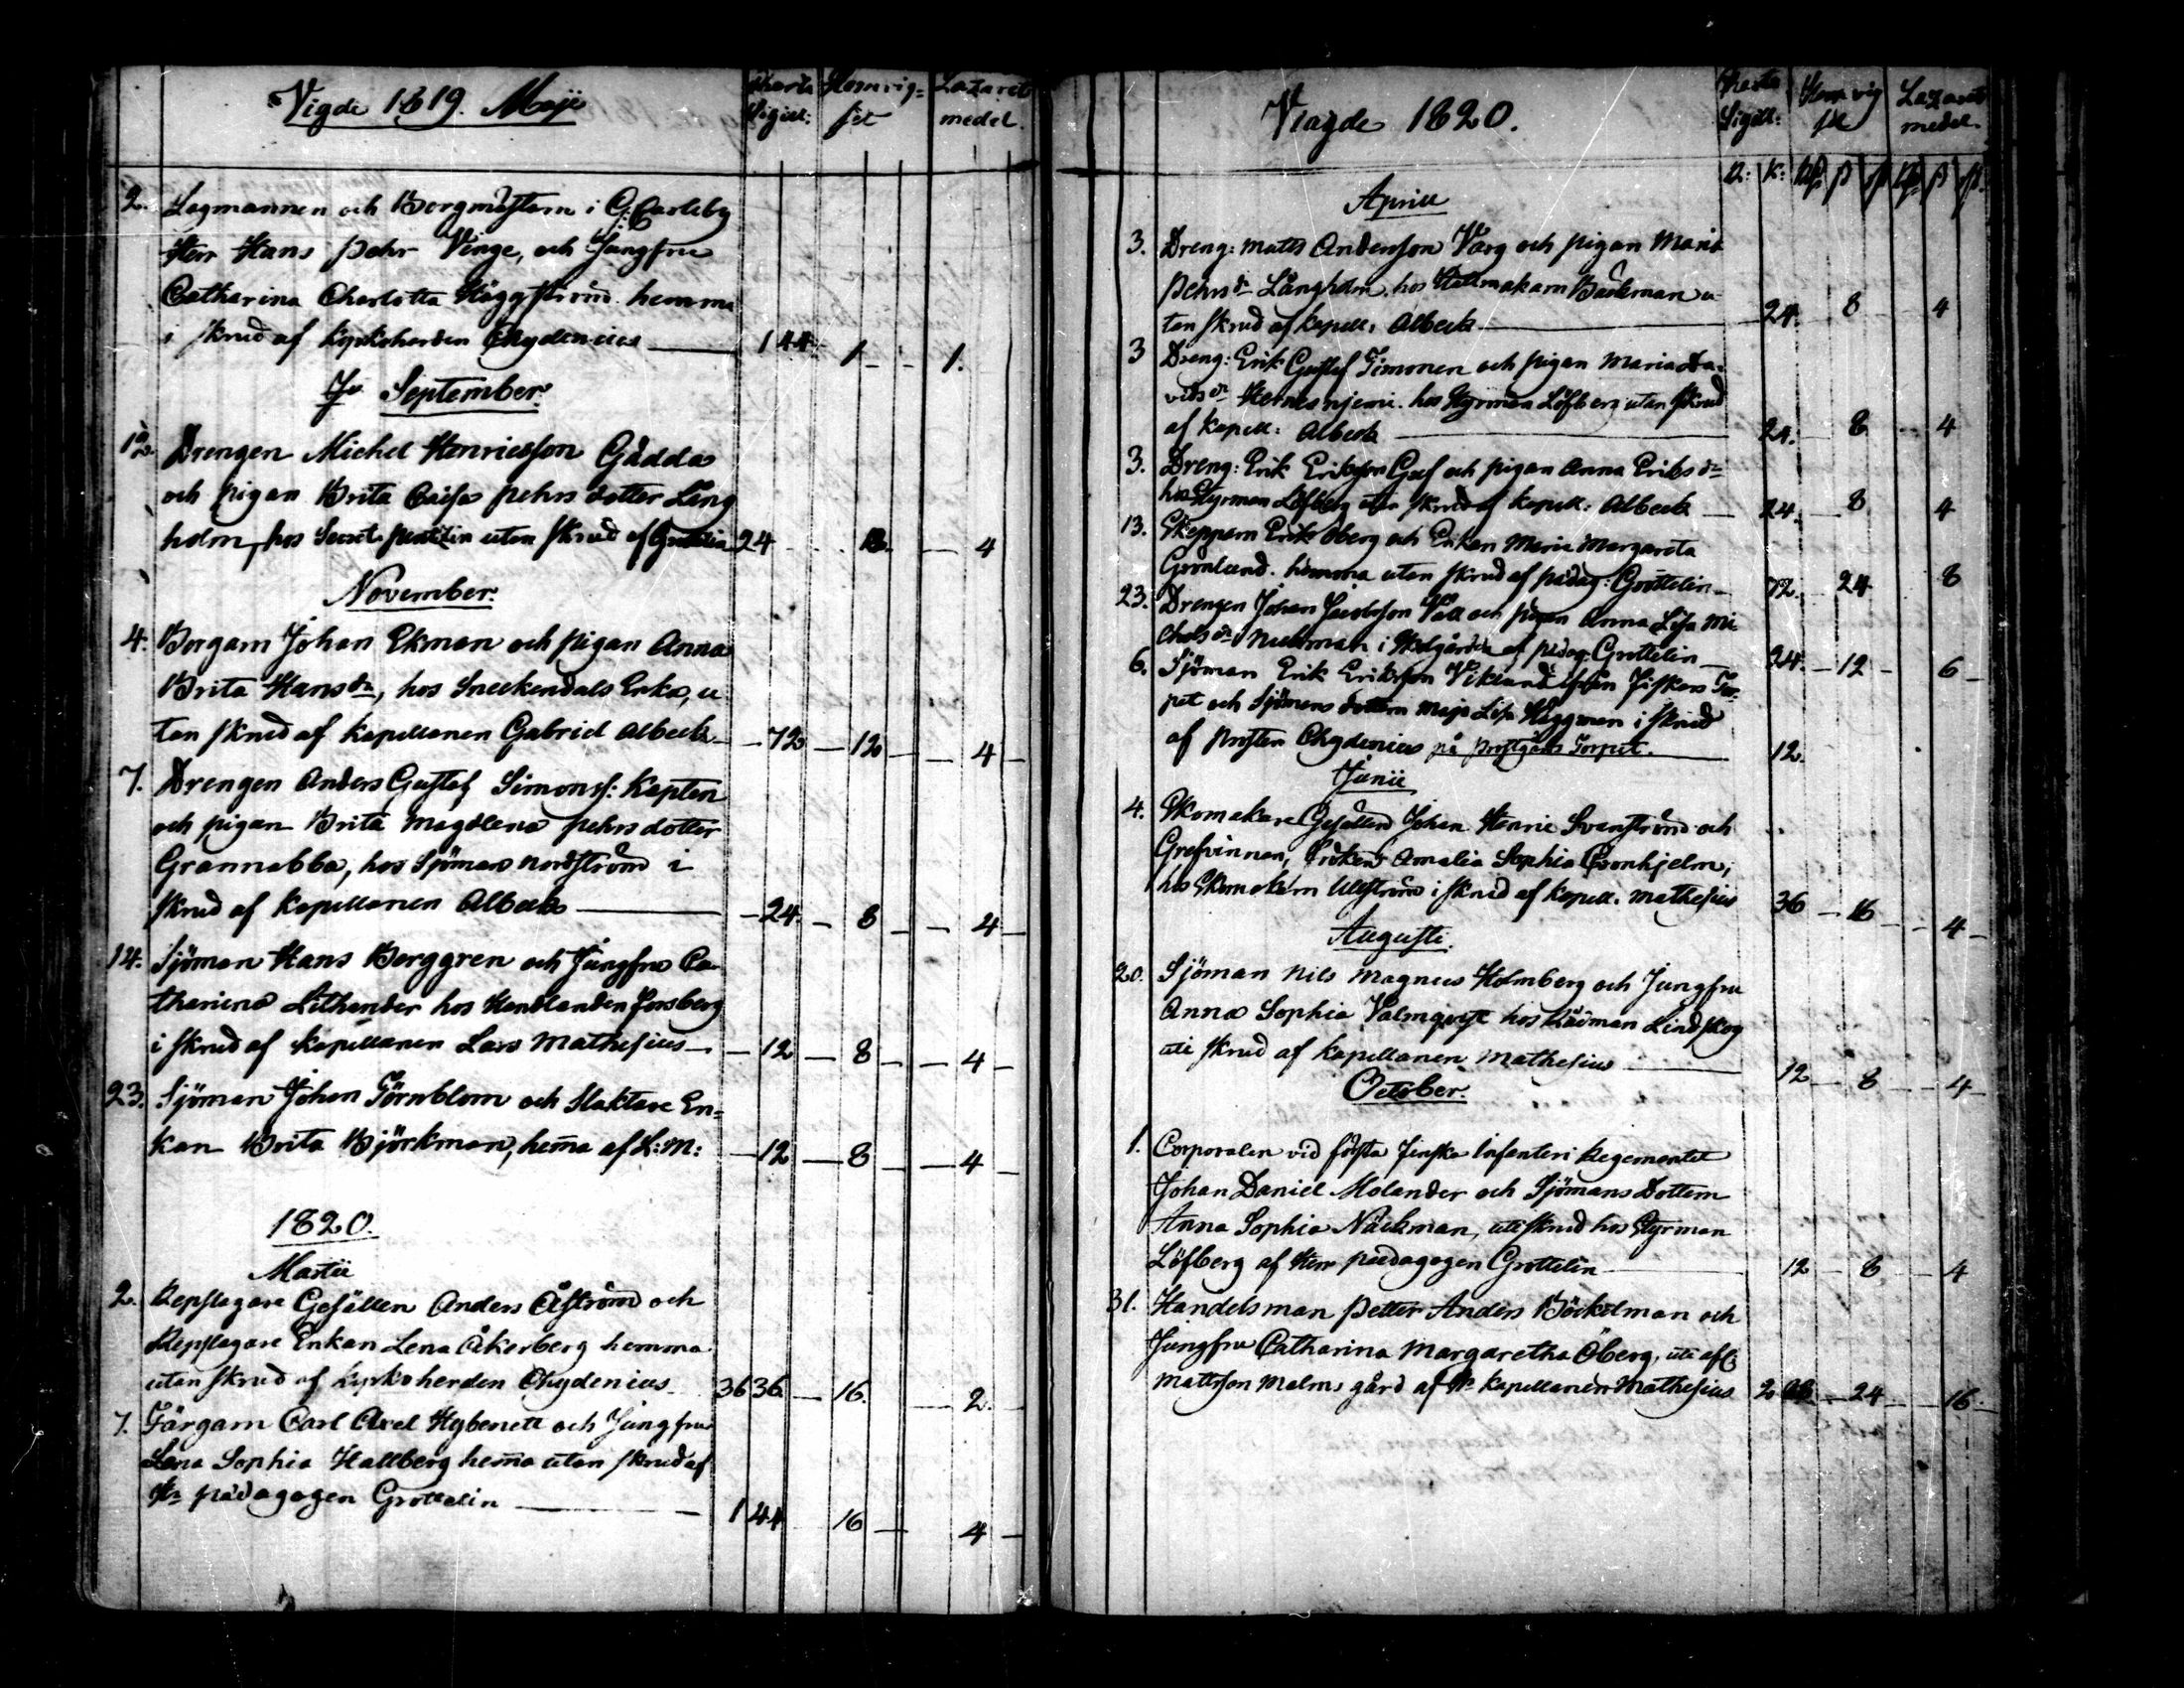 Vigde 1819. Maji
Charta Sigill: Hemvig= sel Lazaret medel.
2. Lagmannen och Borgmästarn i G: Carleby
Herr Hans Pehr Vinge, och Jungfru
Catharina Charlotta Häggström hemma
i skrud af Kyrkoherden Chydenius 144 1 1.
September.
12. Drengen Michel Henricsson Gädda
och pigan Brita Caisa Pehrs dotter Lång
holm, hos utan skrud af 24 4
November.
4. Borgarn Johan Ekman och pigan Anna
Brita Hansdr, hos Sneckendals Enka, u
tan skrud af Kapellanen Gabriel Albeck 72 12 4
7. Drengen Anders Gustaf Simonss: Kapten
och pigan Brita Magdlena Pehrsdotter
Grannabba, hos Sjöman Nordström i
skrud af Kapellanen Albeck 24 8 4
14. Sjöman Hans Borggren och Jungfru Ca-
tharina Lithander hos Handlanden Forsberg
i skrud af Kapellanen Lars Mathesius 12 8 4
23. Sjöman Johan Törnblom och Slaktare En=
kan Brita Björkman, hema af L: M: 12 8 4
1820.
Martii
2. Repslagare Gesällen Anders Åström och
Repslagare Enkan Lena Åkerberg hemma
utan skrud af Kyrkoherden Chydenius 36 36 16. 2.
7. Färgarn Carl Axel Hybenett och Jungfru
Lena Sophia Hallberg hema utan skrud af
Hr pädagogen Grottelin 144 16 4
Viagde 1820.
Charta Sigill: Hem vig sel Lazaret medel.
Aprill
3. Dreng: Matts Andersson Varg och pigan Maria
Pehrsdr Långholm. hos Hattmakarn Backman u-
tan skrud af Kapell: Albeck 24. 8 4
3 Dreng: Erik Gustaf Timonen och pigan Maria Da-
vidsdr hos Styrman Löfberg utan skrud
af Kapell: Albeck 24. 8 4
3. Dreng: Erik Eriksson och pigan Anna Eriksdr
hos Styrman Löfberg utan skrud af Kapell: Albeck 24. 8 4
13. Skeppam Erik Öberg och Enkan Maria Margareta
Grönlund. hemma utan skrud af pädag: Grottelin 72. 24 8
23. Drengen Johan Jacobsson Väll och pigan Anna Lisa Mi
chelsdr i af pädag: Grottelin 24. 12 6
6. Sjöman Erik Eriksson Viklund ifrån Fiskars Tor-
pet och Sjömans dottern Maja Lisa Häggman i skrud
af Prosten Chydenius på Prostgårds Torpet. 12.
Junii
4. Skomakare Gesällen Johan Henric Svanström och
Grefvinnan, Enkan Amalia Sophia Cronhjelm,
hos Skomakarn Ullström i skrud af Kapell. Mathesius 36 16 4
Augusti.
20. Sjöman Nils Magnus Holmberg och Jungfru
Anna Sophia Valmqvist hos Rådman Lindskog
uti skrud af Kapellanen Mathesius 12 8 4
October.
1. Corporalen vid första Finska Infanteri Regementet
Johan Daniel Molander och Sjömans Dottern
Anna Sophia Näckman, uti skrud hos Styrman
Löfberg af Herr pædagogen Grottelin 12 8 4
31. Handelsman Petter Anders Böckelman och
Jungfru Catharina Margaretha Öberg, uti
Mattsson Malms gård af Hr Kapellanen Mathesius 24 16